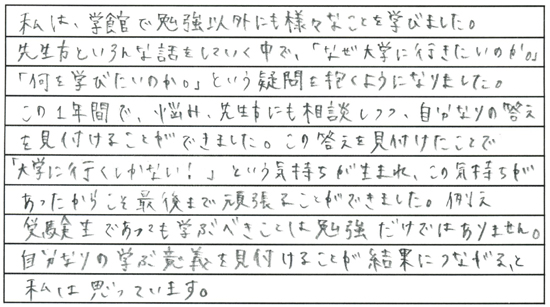 私は、学館で勉強以外にも様々なことを学びました。
先生方といろんな話をしていく中で、「なぜ大学に行きたいのか。」
「何を学びたいのか。」という疑問を抱くようになりました。
この1年間で、悩み、先生方にも相談しつつ、自分なりの答え
を見付けることができました。この答えを見付けたことで
「大学に行くしかない!」という気持ちが生まれ、この気持ちが
あったからこそ最後まで頑張ることができました。例え
受験生であっても学ぶべきことは勉強だけではありません。
自分なりの学ぶ意義を見付けることが結果につながる、と
私は思っています。